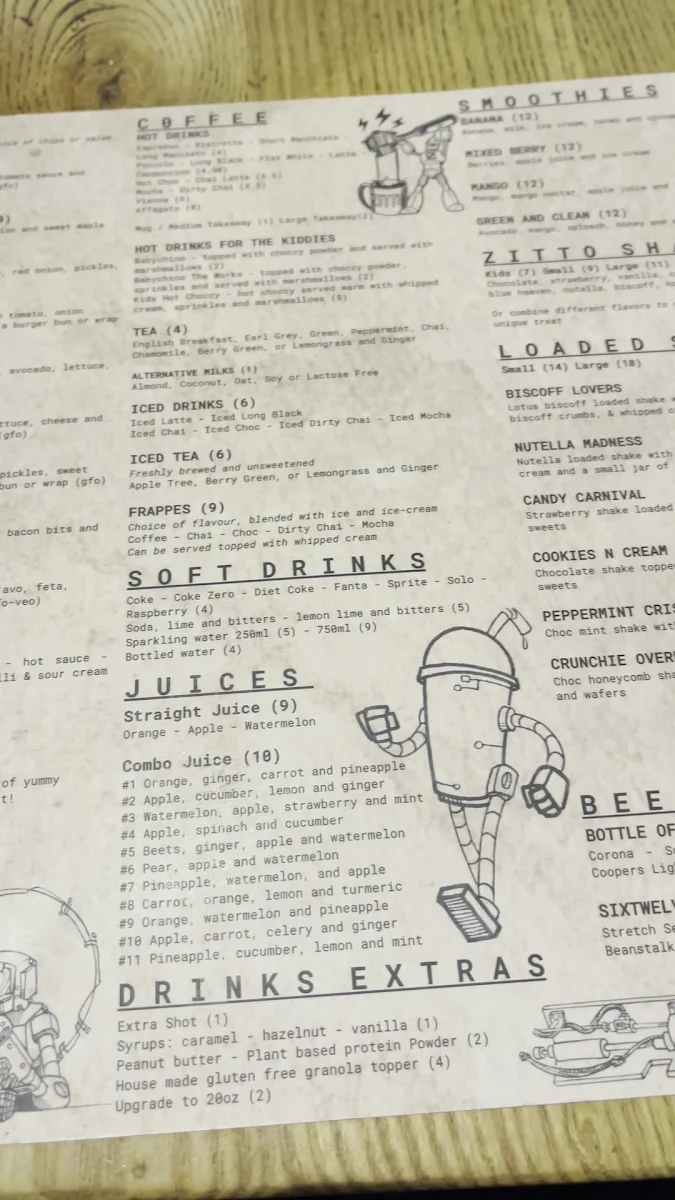 ice of chips or salad
tomato sauce and
on and sweet maple
red onion, pickles,
tomato, onion
a burger bun or wrap
avocado, lettuce,
ttuce, cheese and
(gfo)
pickles, sweet
bun or wrap (gfo)
bacon bits and
avo, feta,
o-veo)
- hot sauce -
lli & sour cream
of yummy
t!
COFFEE
HOT DRINKS
Espresso - Ristretto - Short Macchiato -
Long Macchiato (4)
Piccolo - Long Black - Flat White - Latte
Cappuccino (4.50)
Hot Choc - Chai Latte (5.5)
Mocha - Dirty Chai (5.5)
Vienna (6)
Affogato (6)
Mug / Medium Takeaway (1) Large Takeaway(2)
HOT DRINKS FOR THE KIDDIES
Babychino - topped with choccy powder and served with
marshmallows (2)
Babychino The Works - topped with choccy powder,
sprinkles and served with marshmallows (2)
Kids Hot Choccy - hot choccy served warm with whipped
cream, sprinkles and marshmallows (5)
TEA (4)
English Breakfast, Earl Grey, Green, Peppermint, Chai,
Chamomile, Berry Green, or Lemongrass and Ginger
ALTERNATIVE MILKS (1)
Almond, Coconut, Oat, Soy or Lactose Free
ICED DRINKS (6)
Iced Latte - Iced Long Black
Iced Chai - Iced Choc - Iced Dirty Chai - Iced Mocha
ICED TEA (6)
Freshly brewed and unsweetened
Apple Tree, Berry Green, or Lemongrass and Ginger
FRAPPES (9)
Choice of flavour, blended with ice and ice-cream
Coffee - Chai - Choc - Dirty Chai - Mocha
Can be served topped with whipped cream
SOFT DRINKS
Coke - Coke Zero - Diet Coke - Fanta - Sprite - Solo -
Raspberry (4)
Soda, lime and bitters - lemon lime and bitters (5)
Sparkling water 250ml (5) - 750ml (9)
Bottled water (4)
JUICES
Straight Juice (9)
Orange - Apple - Watermelon
Combo Juice (10)
#1 Orange, ginger, carrot and pineapple
#2 Apple, cucumber, lemon and ginger
#3 Watermelon, apple, strawberry and mint
#4 Apple, spinach and cucumber
#5 Beets, ginger, apple and watermelon
#6 Pear, apple and watermelon
#7 Pineapple, watermelon, and apple
#8 Carrot, orange, lemon and turmeric
#9 Orange, watermelon and pineapple
#10 Apple, carrot, celery and ginger
#11 Pineapple, cucumber, lemon and mint
DRINKS EXTRAS
Extra Shot (1)
Syrups: caramel - hazelnut - vanilla (1)
Peanut butter - Plant based protein Powder (2)
House made gluten free granola topper (4)
Upgrade to 20oz (2)
SMOOTHIES
BANANA (12)
Banana, milk, ice cream, honey and
MIXED BERRY (12)
Berries, apple juice and ice cream
MANGO (12)
Mango, mango nectar, apple juice and
GREEN AND CLEAN (12)
Avocado, mango, spinach, honey and
ZITTO SHA
Kids (7) Small (9) Large (11)
Chocolate, strawberry, vanilla,
blue heaven, nutella, biscoff,
Or combine different flavors to
unique treat
LOADED S
Small (14) Large (18)
BISCOFF LOVERS
Lotus biscoff loaded shake w
biscoff crumbs, & whipped c
NUTELLA MADNESS
Nutella loaded shake with
cream and a small jar of
CANDY CARNIVAL
Strawberry shake loaded
sweets
COOKIES N CREAM
Chocolate shake toppe
sweets
PEPPERMINT CRIS
Choc mint shake wit
CRUNCHIE OVER
Choc honeycomb sha
and wafers
BEE
BOTTLE OF
Corona - S
Coopers Lig
SIXTWELV
Stretch Se
Beanstalk